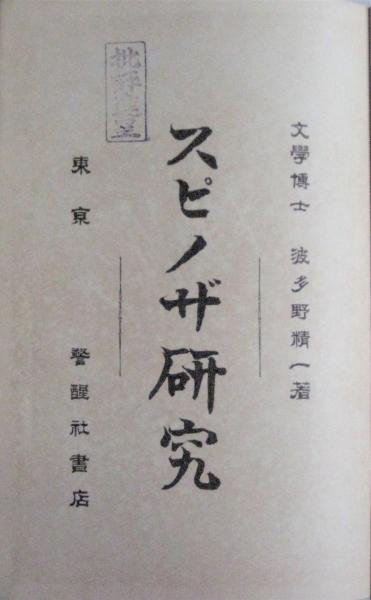 文學博士 波多野精一著
スピノザ研究
東京 警醒社書店